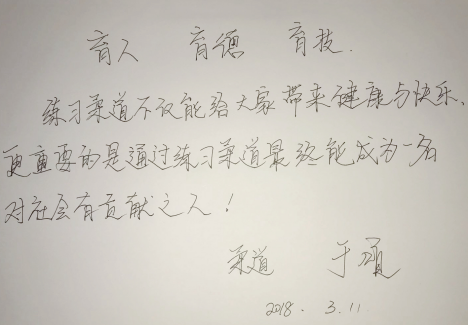 育人 育德 育技.
练习柔道不仅能给大家带来健康与快乐、
更重要的是通过练习柔道最终能成为一名
对社会有贡献之人!
柔道 于
2018. 3.11